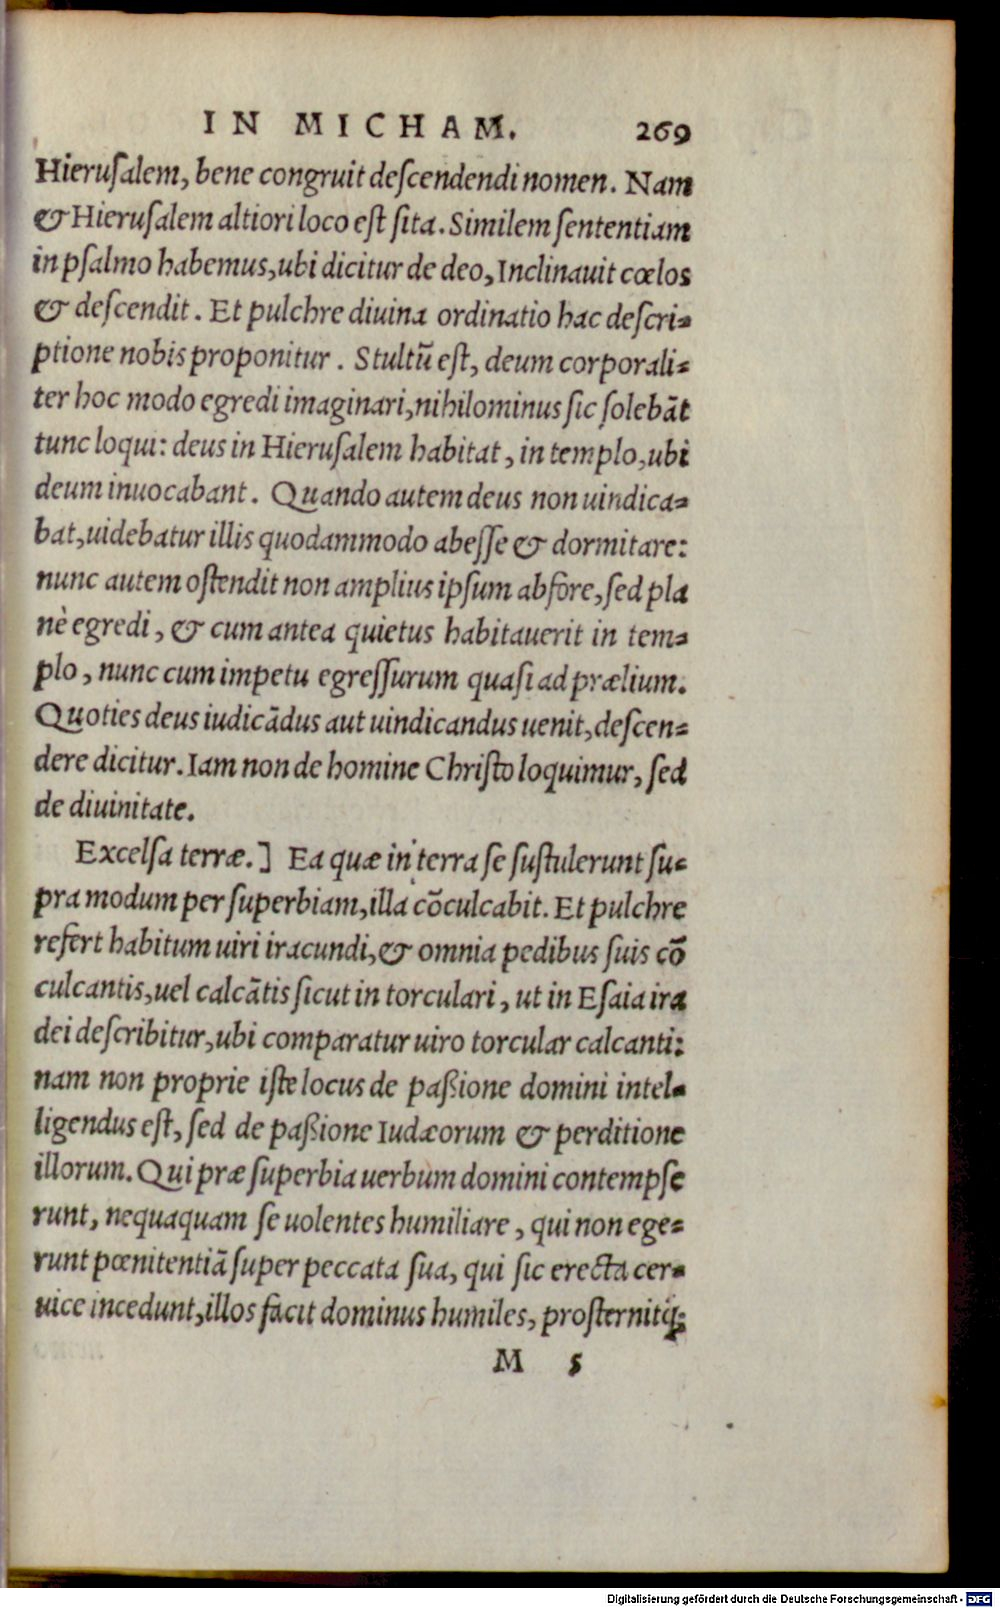 IN MICHAM. 269
Hieruſalem, bene congruit deſcendendi nomen. Nam
& Hieruſalem altiori loco eſt ſita. Similem ſententiam
in pſalmo habemus, ubi dicitur de deo, Inclinauit cœlos
& deſcendit. Et pulchre diuina ordinatio hac deſcri-
ptione nobis proponitur. Stultũ eſt, deum corporali-
ter hoc modo egredi imaginari, nihilominus ſic ſolebãt
tunc loqui: deus in Hieruſalem habitat, in templo, ubi
deum inuocabant. Quando autem deus non uindica-
bat, uidebatur illis quodammodo abeſſe & dormitare:
nunc autem oſtendit non amplius ipſum abfore, ſed pla
nè egredi, & cum antea quietus habitauerit in tem-
plo, nunc cum impetu egreſſurum quaſi ad prælium.
Quoties deus iudicãdus aut uindicandus uenit, deſcen-
dere dicitur. Iam non de homine Chriſto loquimur, ſed
de diuinitate.
Excelſa terræ.] Ea quæ in terra ſe ſuſtulerunt ſu-
pra modum per ſuperbiam, illa cõculcabit. Et pulchre
refert habitum uiri iracundi, & omnia pedibus ſuis cõ
culcantis, uel calcãtis ſicut in torculari, ut in Eſaia ira
dei deſcribitur, ubi comparatur uiro torcular calcanti:
nam non proprie iſte locus de paßione domini intel-
ligendus eſt, ſed de paßione Iudæorum & perditione
illorum. Qui præ ſuperbia uerbum domini contempſe
runt, nequaquam ſe uolentes humiliare, qui non ege-
runt pœnitentiã ſuper peccata ſua, qui ſic erecta cer-
uice incedunt, illos facit dominus humiles, proſternitq́;
M 5
Digitalisierung gefördert durch die Deutsche Forschungsgemeinschaft - DFG